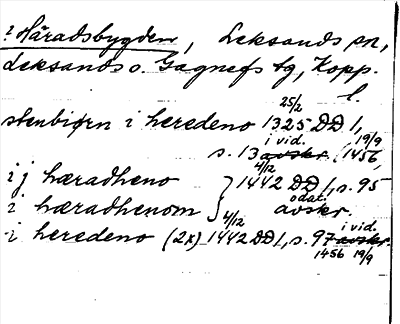 ? Häradsbygden, Leksands sn,
Leksands o. Gagnefs tg, Kopp.
l.
stenbiørn i heredeno 25/2 1325 DD 1,
s. 13 i vid. avskr. 19/9 1456,
i j hæradheno } 4/12 1442 DD 1, s. 95
i hæradhenom } odat. avskr.
i heredeno (2x) 4/12 1442 DD 1, s. 97 i vid. avskr.
1456 19/9